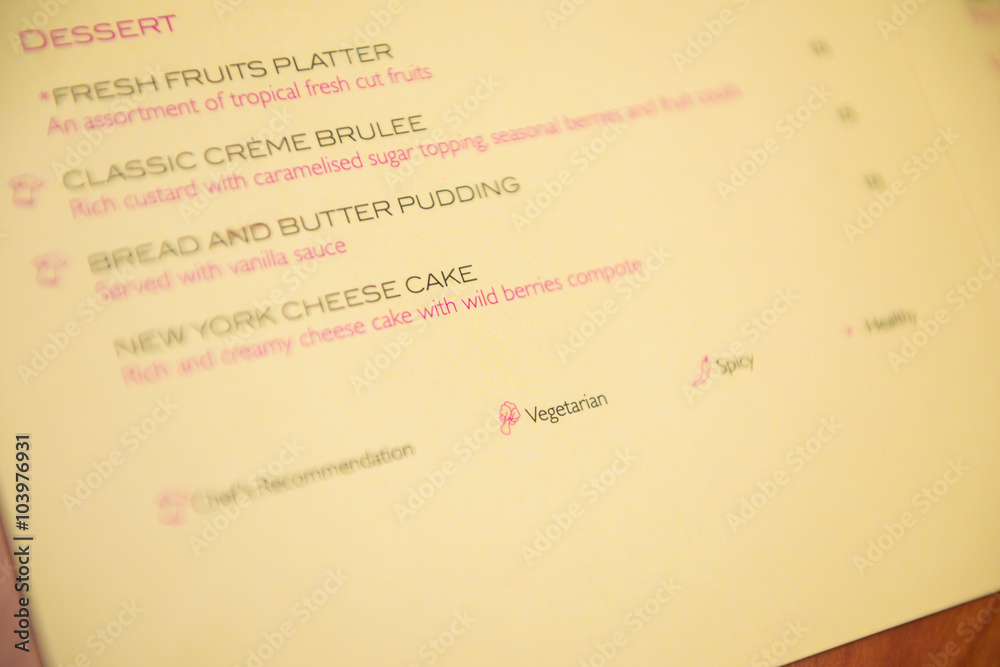 DESSERT
*FRESH FRUITS PLATTER
An assortment of tropical fresh cut fruits
CLASSIC CRÈME BRULEE
Rich custard with caramelised sugar topping, seasonal berries and fruit coulis
BREAD AND BUTTER PUDDING
Served with vanilla sauce
NEW YORK CHEESE CAKE
Rich and creamy cheese cake with wild berries compote
Chef's Recommendation
Vegetarian
Spicy
* Healthy
Adobe Stock | #103976931